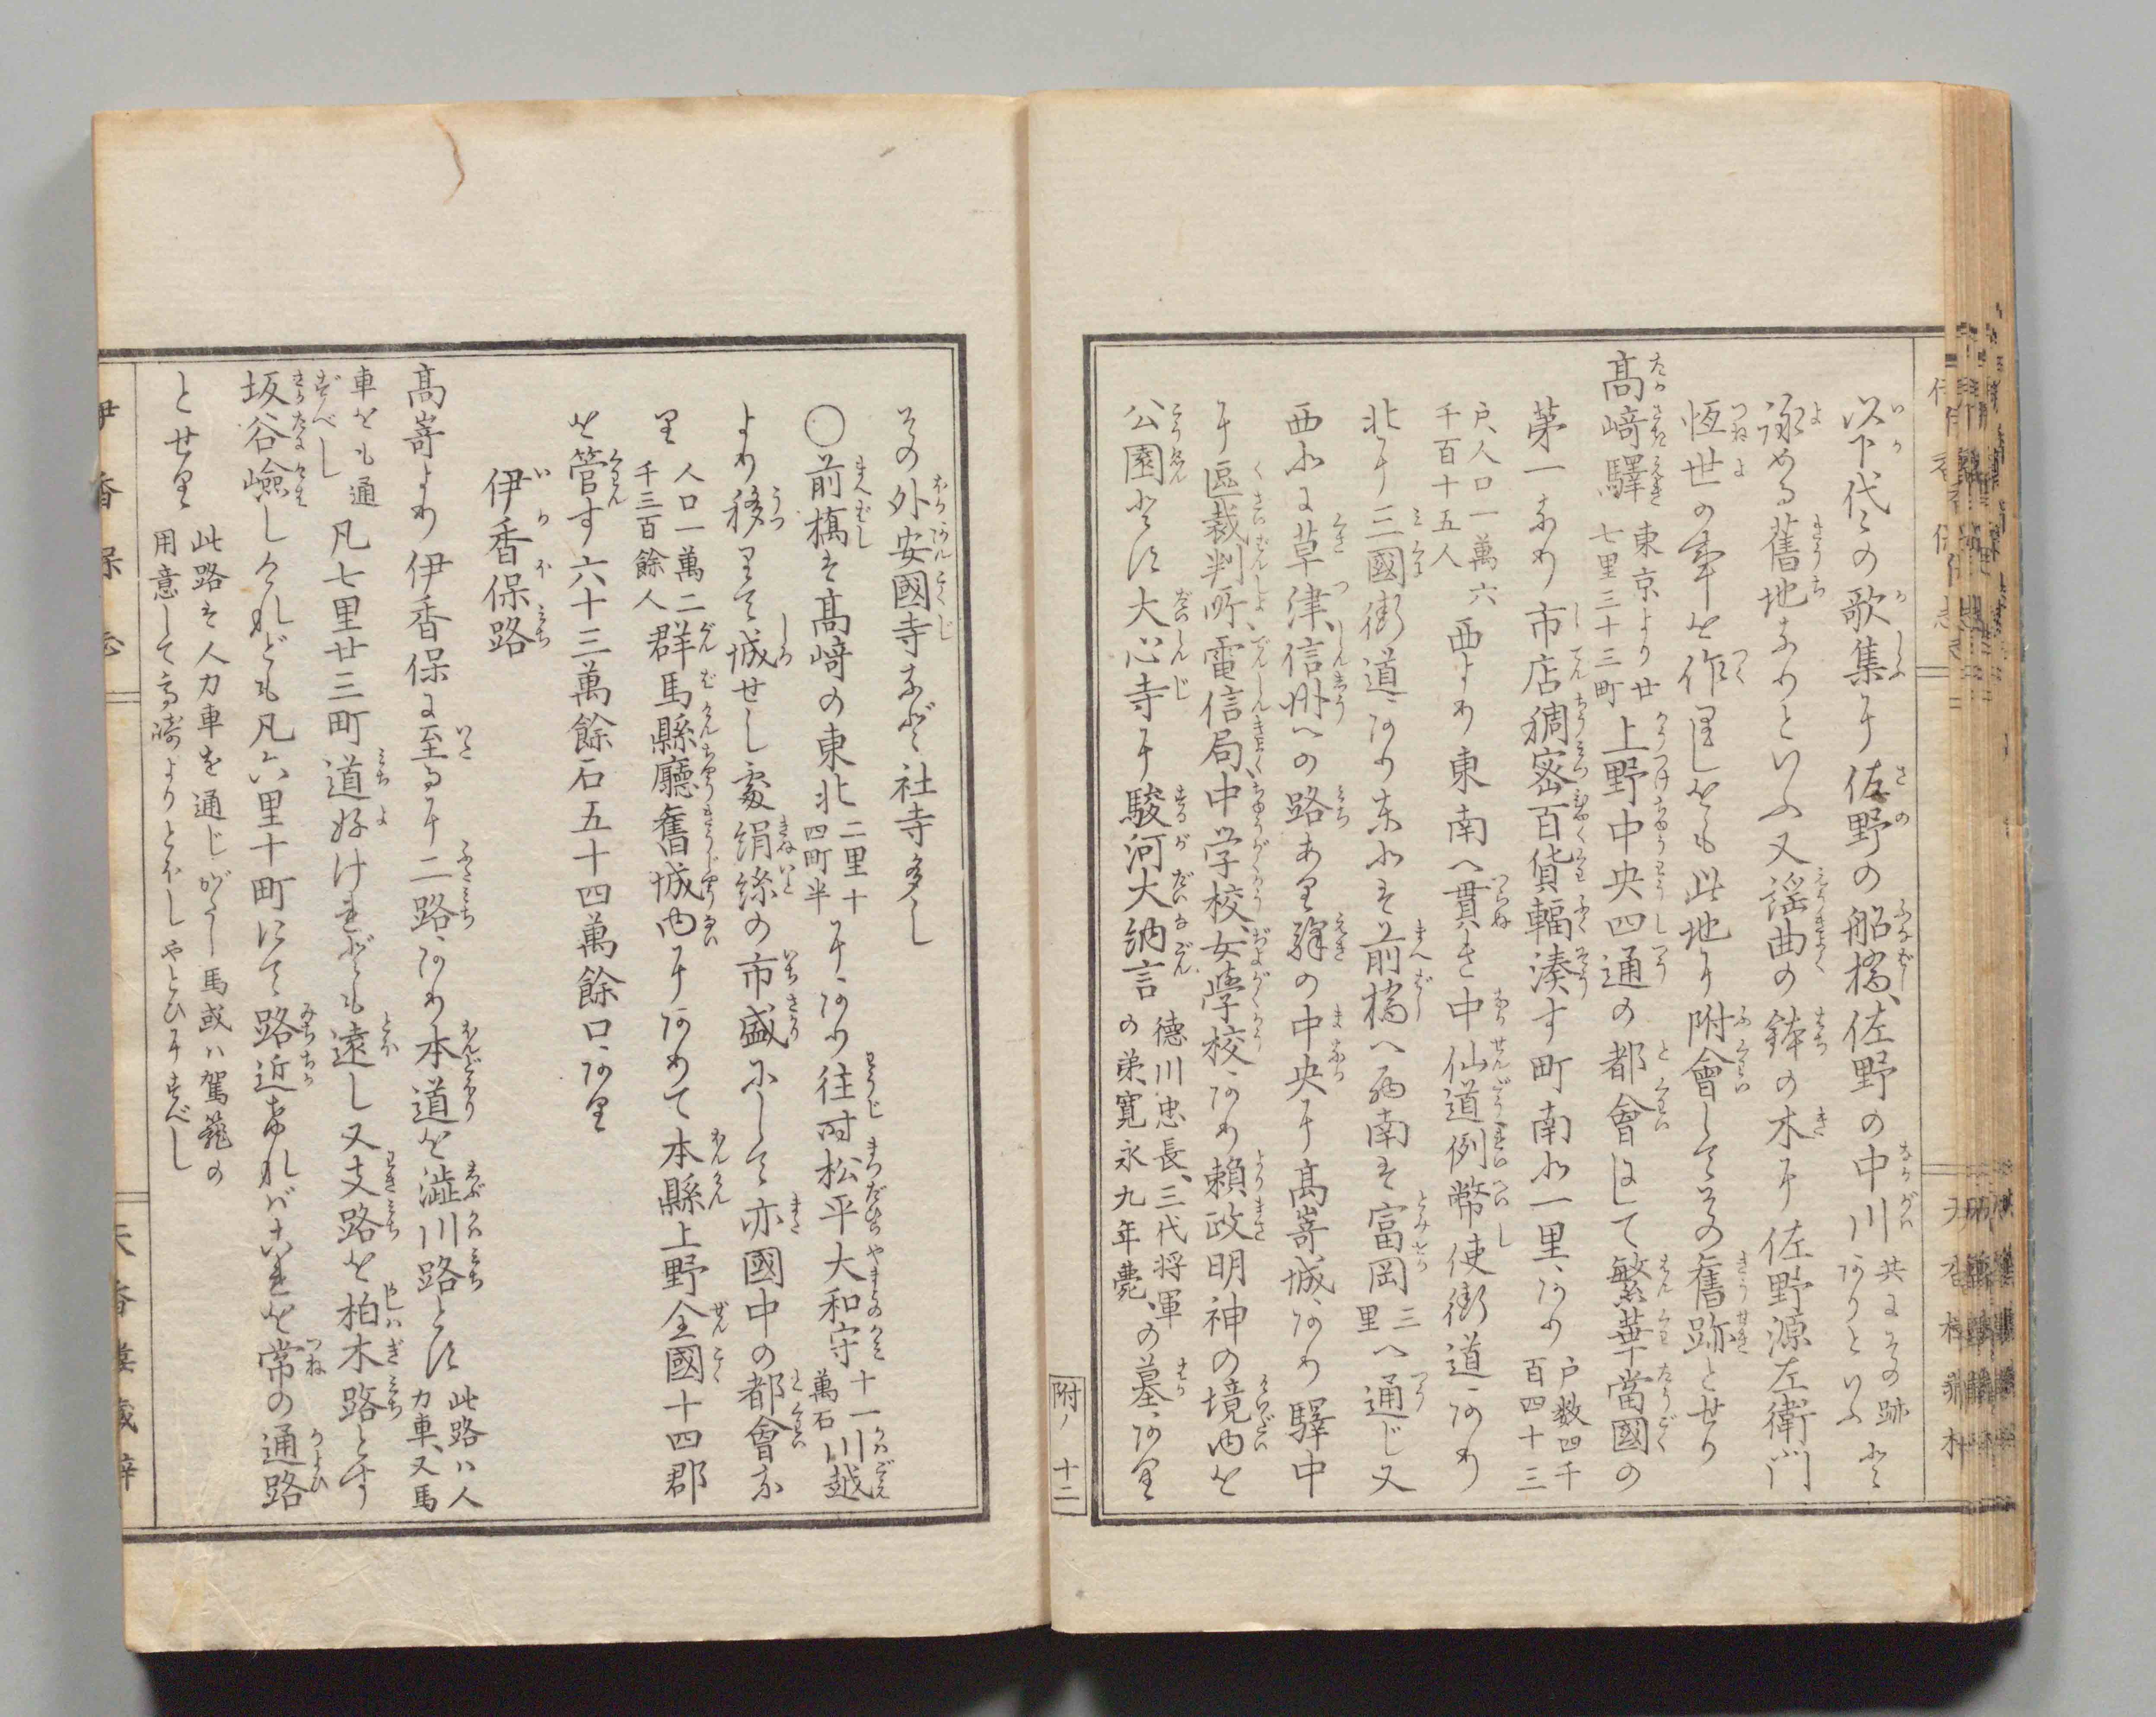 以下代々の歌集に佐野の船橋、佐野の中川 共にその跡ありといふ と
詠める舊地なりといふ又謡曲の鉢の木に佐野源左衛門
恆世の事を作りしをも此地に附會してその舊跡とせり
高﨑驛 東京より廿七里三十三町 上野中央四通の都會にして繁華當國の
第一なり市店稠密百貨輻湊す町南北一里、あり 戸数四千百四十三
戸、人口一萬六千百十五人 西より東南へ貫き中仙道例幣使街道、あり
北に三國街道、あり東北を前橋へ西南を富岡 三里 へ通じ又
西北に草津、信州への路あり驛の中央に高嵜城、あり驛中
に區裁判所、電信局、中学校、女學校、あり頼政明神の境内を
公園とす大心寺に駿河大納言 德川忠長、三代将軍の弟、寛永九年薨、 の墓、あり
附ノ 十二
その外安國寺など社寺多し
〇前橋を高﨑の東北 二里十四町半 に、あり往時松平大和守 十一萬石 川越
より移りて城せし處絹絲の市盛にして亦國中の都會な
り 人口一萬二千三百餘人 群馬縣廳舊城内にありて本縣上野全國十四郡
を管す六十三萬餘石五十四萬餘口、あり
伊香保路
高嵜より伊香保に至るに二路、あり本道を澁川路とす 此路ハ人力車、又馬
車をも通ずべし 凡七里廿三町道好けれども遠し又支路を柏木路とす
坂谷嶮しけれども凡六里十町にて路近ければこれを常の通路
とせり 此路を人力車を通じがたし馬或ハ駕籠の用意して高嵜よりとほしやとひにすべし
伊香保志